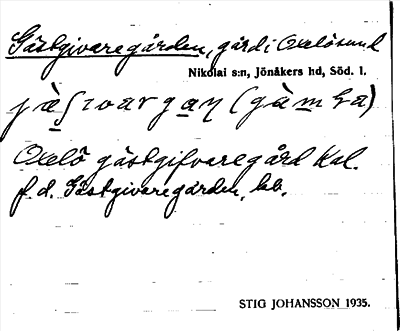 Gästgivaregården, gård i Oxelösund
Nikolai s:n, Jönåkers hd, Söd. l.
Oxelö gästgifvaregård Kal.
f.d. Gästgivaregården, lab.
STIG JOHANSSON 1935.